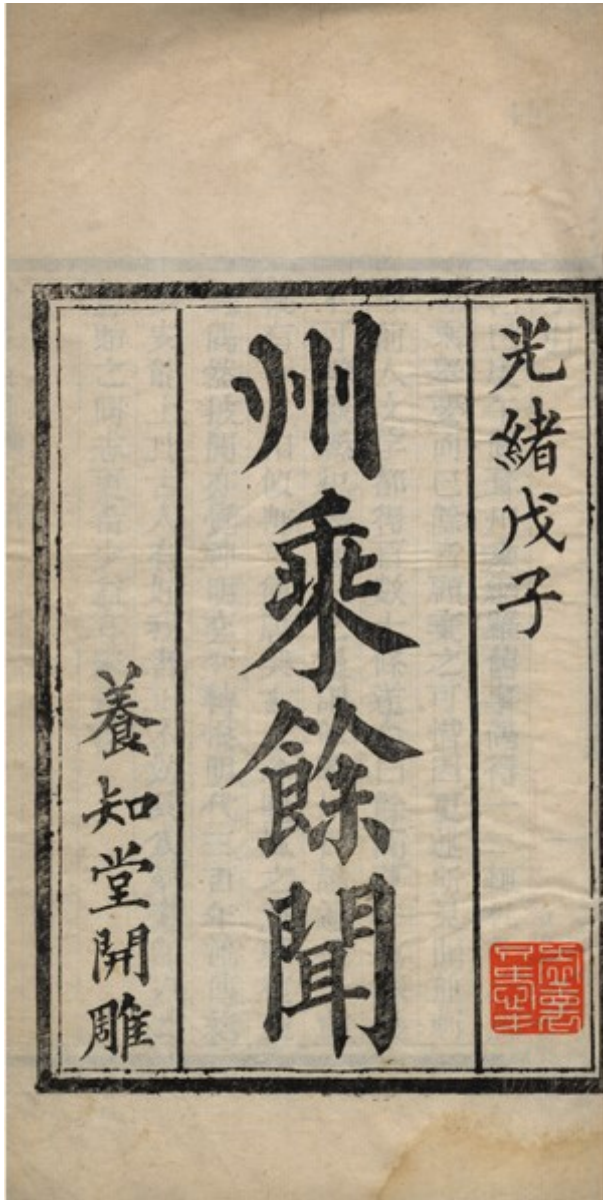 光緒戊子
州乘餘聞
養知堂開雕